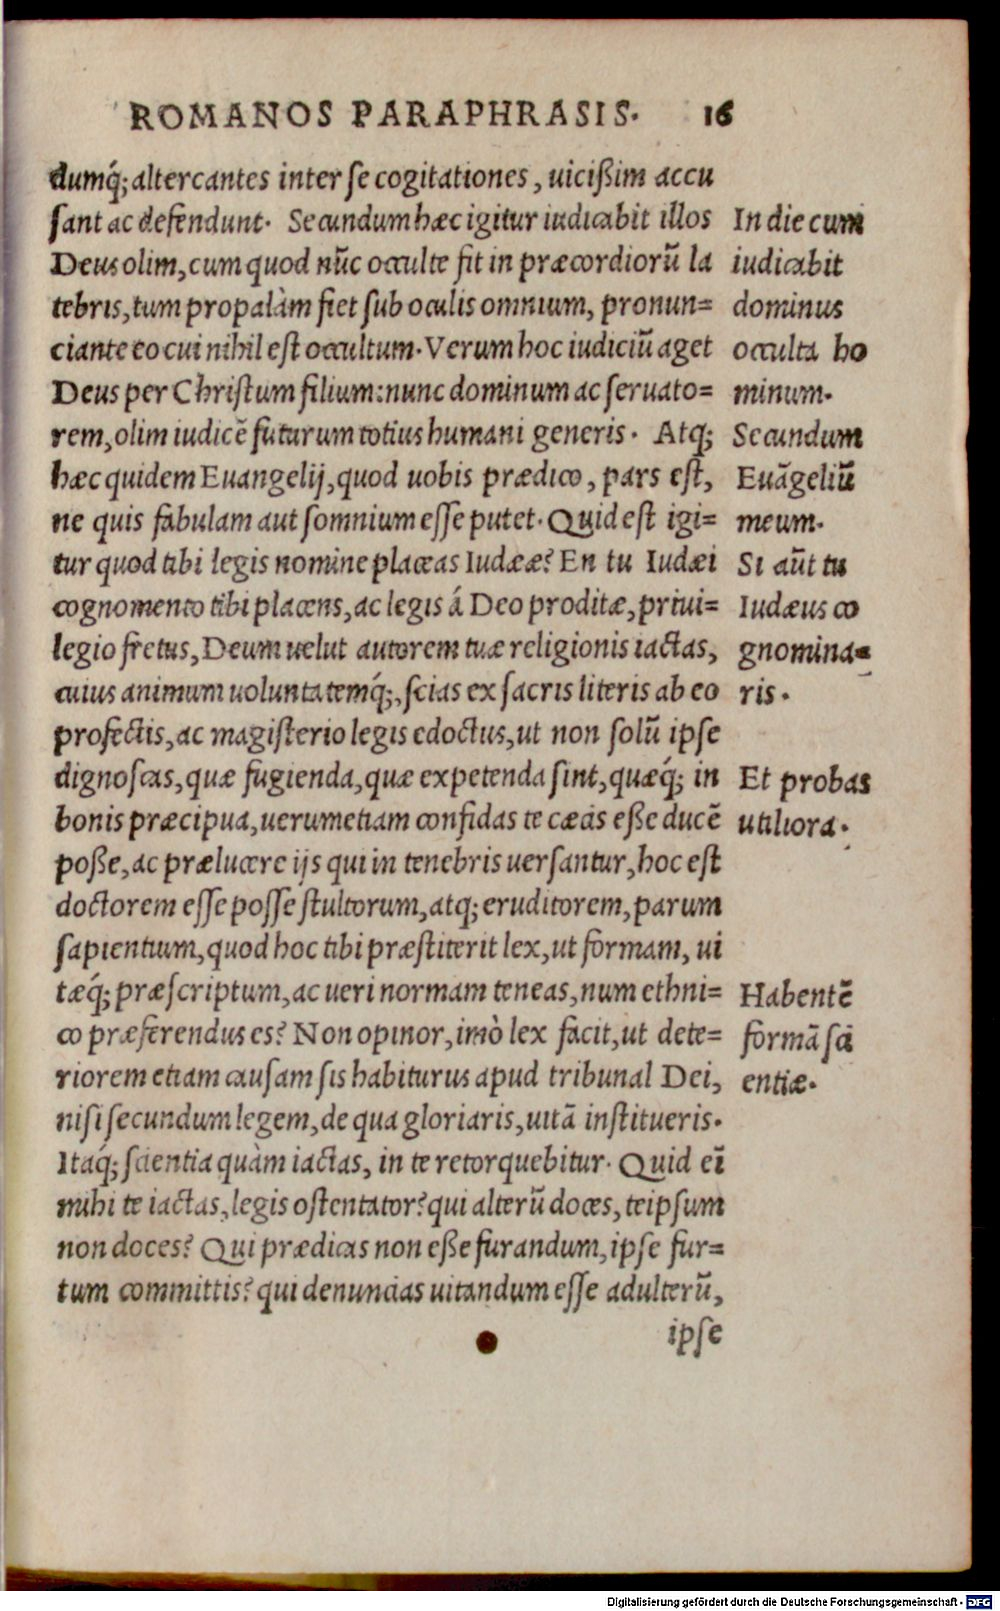 ROMANOS PARAPHRASIS. 16
dumq́; altercantes inter se cogitationes, uicißim accu
sant ac defendunt. Secundum hæc igitur iudicabit illos
Deus olim, cum quod nũc occulte fit in præcordiorũ la
tebris, tum propalàm fiet sub oculis omnium, pronun=
ciante eo cui nihil est occultum. Verum hoc iudiciũ aget
Deus per Christum filium: nunc dominum ac seruato=
rem, olim iudicẽ futurum totius humani generis. Atq;
hæc quidem Euangelij, quod uobis prædico, pars est,
ne quis fabulam aut somnium esse putet. Quid est igi=
tur quod tibi legis nomine placeas Iudæe? En tu Iudæi
cognomento tibi placens, ac legis á Deo proditæ, priui=
legio fretus, Deum uelut autorem tuæ religionis iactas,
cuius animum uoluntatemq́;, scias ex sacris literis ab eo
profectis, ac magisterio legis edoctus, ut non solũ ipse
dignoscas, quæ fugienda, quæ expetenda sint, quæq́; in
bonis præcipua, uerumetiam confidas te cæcis eße ducẽ
poße, ac prælucere ijs qui in tenebris uersantur, hoc est
doctorem esse posse stultorum, atq; eruditorem, parum
sapientium, quod hoc tibi præstiterit lex, ut formam, ui
tæq́; præscriptum, ac ueri normam teneas, num ethni=
co præferendus es? Non opinor, imò lex facit, ut dete=
riorem etiam causam sis habiturus apud tribunal Dei,
nisi secundum legem, de qua gloriaris, uitã institueris.
Itaq́; scientia quàm iactas, in te retorquebitur. Quid eĩ
mihi te iactas, legis ostentator? qui alterũ doces, teipsum
non doces? Qui prædicas non eße furandum, ipse fur=
tum committis? qui denuncias uitandum esse adulterũ,
ipse
In die cum
iudicabit
dominus
occulta ho
minum.
Secundum
Euãgeliũ
meum.
Si aũt tu
Iudæus co
gnomina=
ris.
Et probas
utiliora.
Habentẽ
formã sci
entiæ.
Digitalisierung gefördert durch die Deutsche Forschungsgemeinschaft - DFG